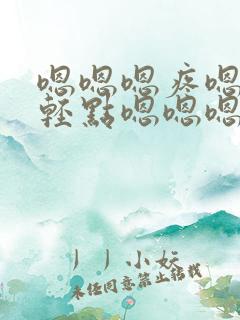 嗯嗯嗯疼嗯
轻點嗯嗯嗯
丿丿小妖
未经同意禁止转载